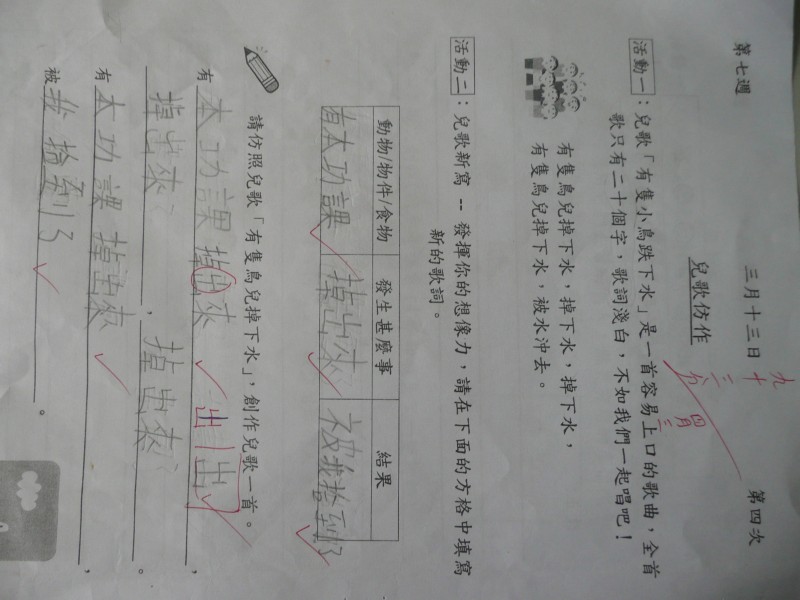 第七週 三月十三日 第四次
兒歌仿作
九十三分
四月
活動一：兒歌「有隻小鳥跌下水」是一首容易上口的歌曲，全首
歌只有二十個字，歌詞淺白，不如我們一起唱吧！
有隻鳥兒掉下水，掉下水，掉下水，
有隻鳥兒掉下水，被水沖去。
活動二：兒歌新寫 -- 發揮你的想像力，請在下面的方格中填寫
新的歌詞。
動物/物件/食物 發生甚麼事 結果
有本功課 掉出來 被我拾到了
請仿照兒歌「有隻鳥兒掉下水」，創作兒歌一首。
有本功課掉出來，
出 出
掉出來，掉出來。
有本功課掉出來，
被我拾到了。